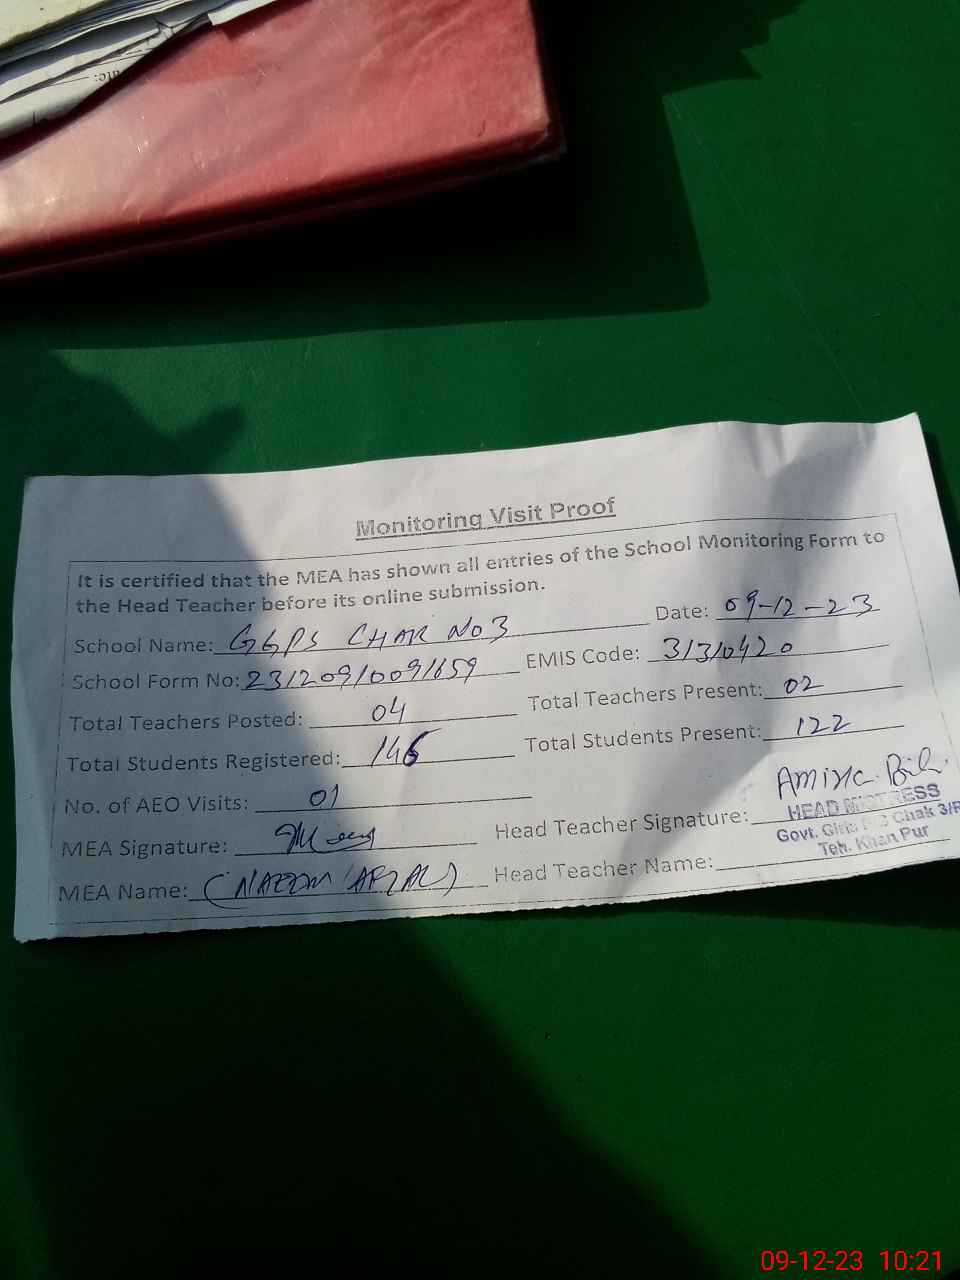 Monitoring Visit Proof
It is certified that the MEA has shown all entries of the School Monitoring Form to
the Head Teacher before its online submission.
School Name: GGPS CHAK No 3 Date: 09-12-23
School Form No: 231209/0091659 EMIS Code: 31310420
Total Teachers Posted: 04 Total Teachers Present: 02
Total Students Registered: 146 Total Students Present: 122
No. of AEO Visits: 01
MEA Signature: Head Teacher Signature:
HEAD MISTRESS
Govt. Girls Chak 3/P
Teh. Khan Pur
MEA Name: (NAEEM AFZAL) Head Teacher Name:
09-12-23 10:21